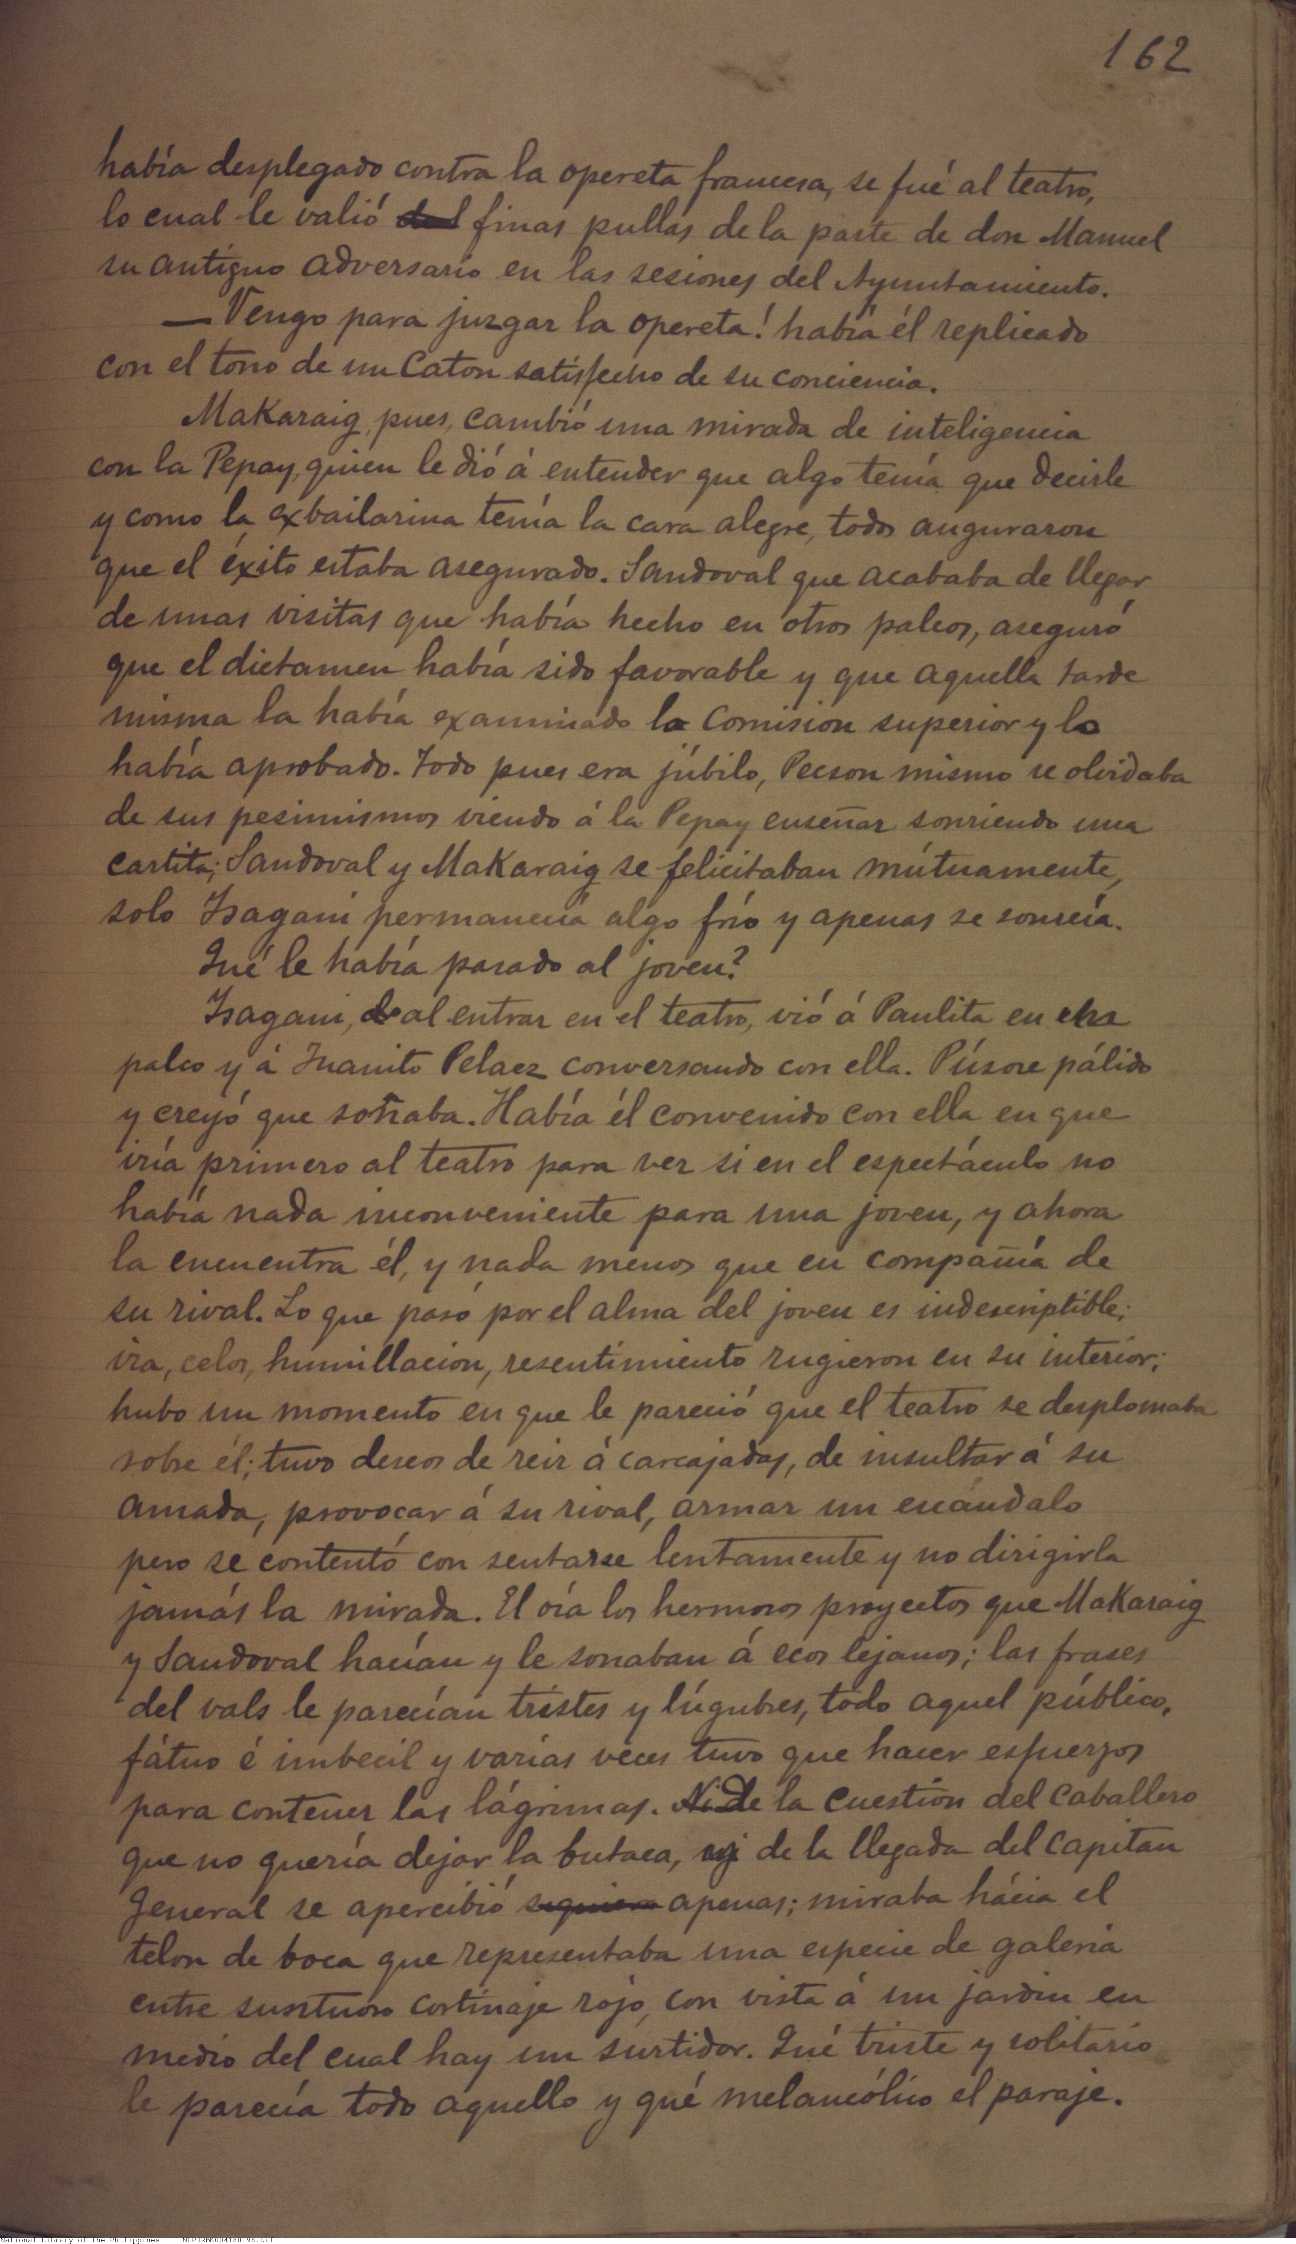 162
había desplegado contra la opereta francesa, se fué al teatro,
lo cual le valió del finas pullas de la parte de don Manuel
su antíguo adversario en las sesiones del Ayuntamiento.
—Vengo para juzgar la opereta! había él replicado
con el tono de un Caton satisfecho de su conciencia.
Makaraig, pues, cambió una mirada de inteligencia
con la Pepay, quien le dió á entender que algo tenía que decirle
y como la exbailarina tenía la cara alegre, todos auguraron
que el éxito estaba asegurado. Sandoval que acababa de llegar
de unas visitas que había hecho en otros palcos, aseguró
que el dictamen había sido favorable y que aquella tarde
misma la había examinado la Comision superior y lo
había aprobado. Todo pues era júbilo, Pecson mismo se olvidaba
de sus pesimismos viendo á la Pepay enseñar sonriendo una
cartita; Sandoval y Makaraig se felicitaban mútuamente,
solo Isagani permanecía algo frío y apenas se sonreía.
Qué le había pasado al joven?
Isagani, al entrar en el teatro, vió á Paulita en
palco y á Juanito Pelaez conversando con ella. Púsose pálido
y creyó que soñaba. Había él convenido con ella en que
iría primero al teatro para ver si en el espectáculo no
había nada inconveniente para una joven, y ahora
la encuentra él, y nada menos que en compañía de
su rival. Lo que pasó por el alma del joven es indescriptible:
ira, celos, humillacion, resentimiento rugieron en su interior;
hubo un momento en que le pareció que el teatro se desplomaba
sobre él; tuvo deseos de reir á carcajadas, de insultar á su
amada, provocar á su rival, armar un escándalo
pero se contentó con sentarse lentamente y no dirigirla
jamás la mirada. El oía los hermosos proyectos que Makaraig
y Sandoval hacían y le sonaban á ecos lejanos; las frases
del vals le parecían tristes y lúgubres, todo aquel público,
fátuo é imbecil y varias veces tuvo que hacer esfuerzos
para contener las lágrimas. Ni De la cuestion del caballero
que no quería dejar la butaca, ni de la llegada del Capitan
General se apercibió siquiera apenas; miraba hácia el
telon de boca que representaba una especie de galería
entre suntuoso cortinaje rojo, con vista á un jardin en
medio del cual hay un surtidor. Qué triste y solitario
le parecía todo aquello y qué melancólico el paraje.